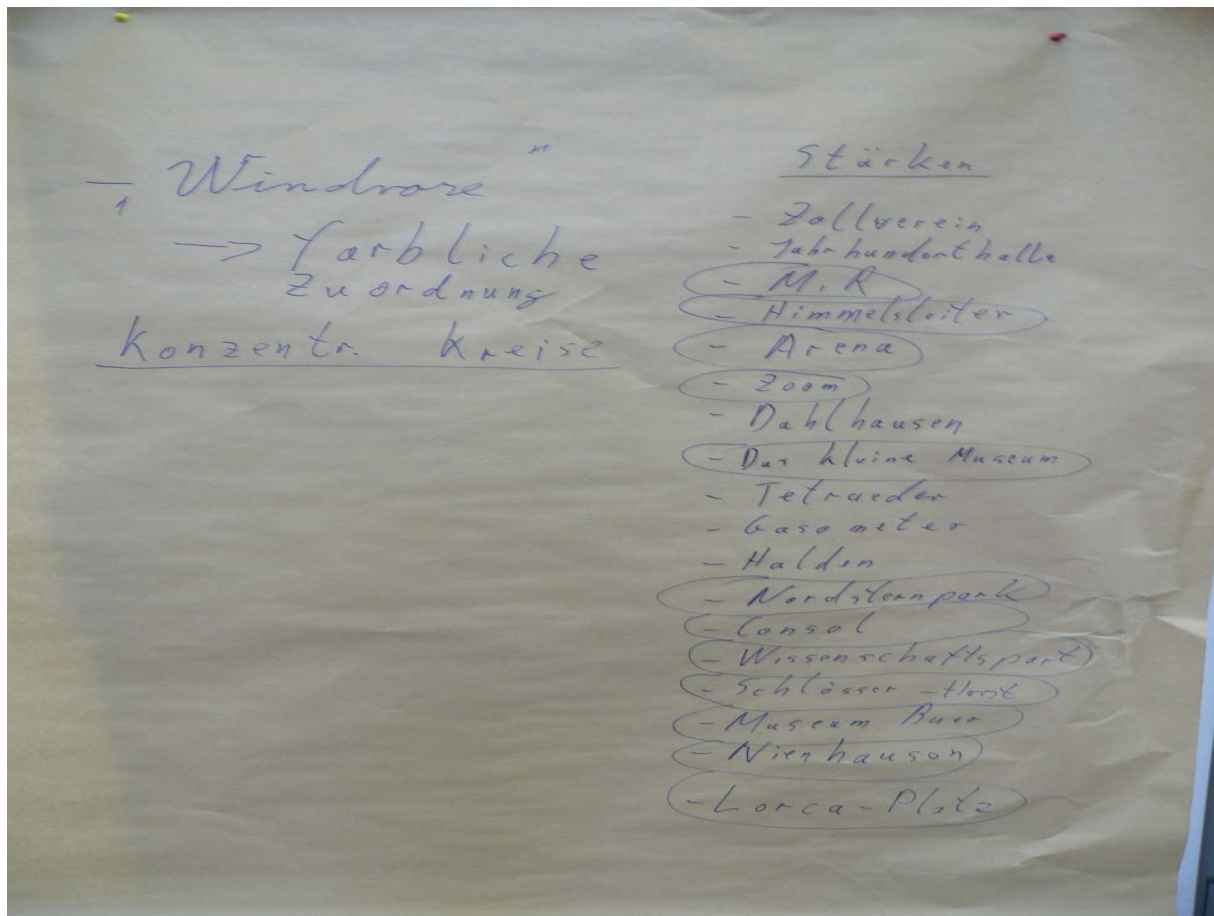 – „Windrose"
→ farbliche
Zuordnung
Konzentr. Kreise
Stärken
- Zollverein
- Jahrhunderthalle
- M.R
- Himmelsleiter
- Arena
- Zoom
- Dahlhausen
- Das kleine Museum
- Tetraeder
- Gasometer
- Halden
- Nordsternpark
- Consol
- Wissenschaftspark
- Schlösser - Horst
- Museum Buer
- Nienhausen
- Lorca-Platz